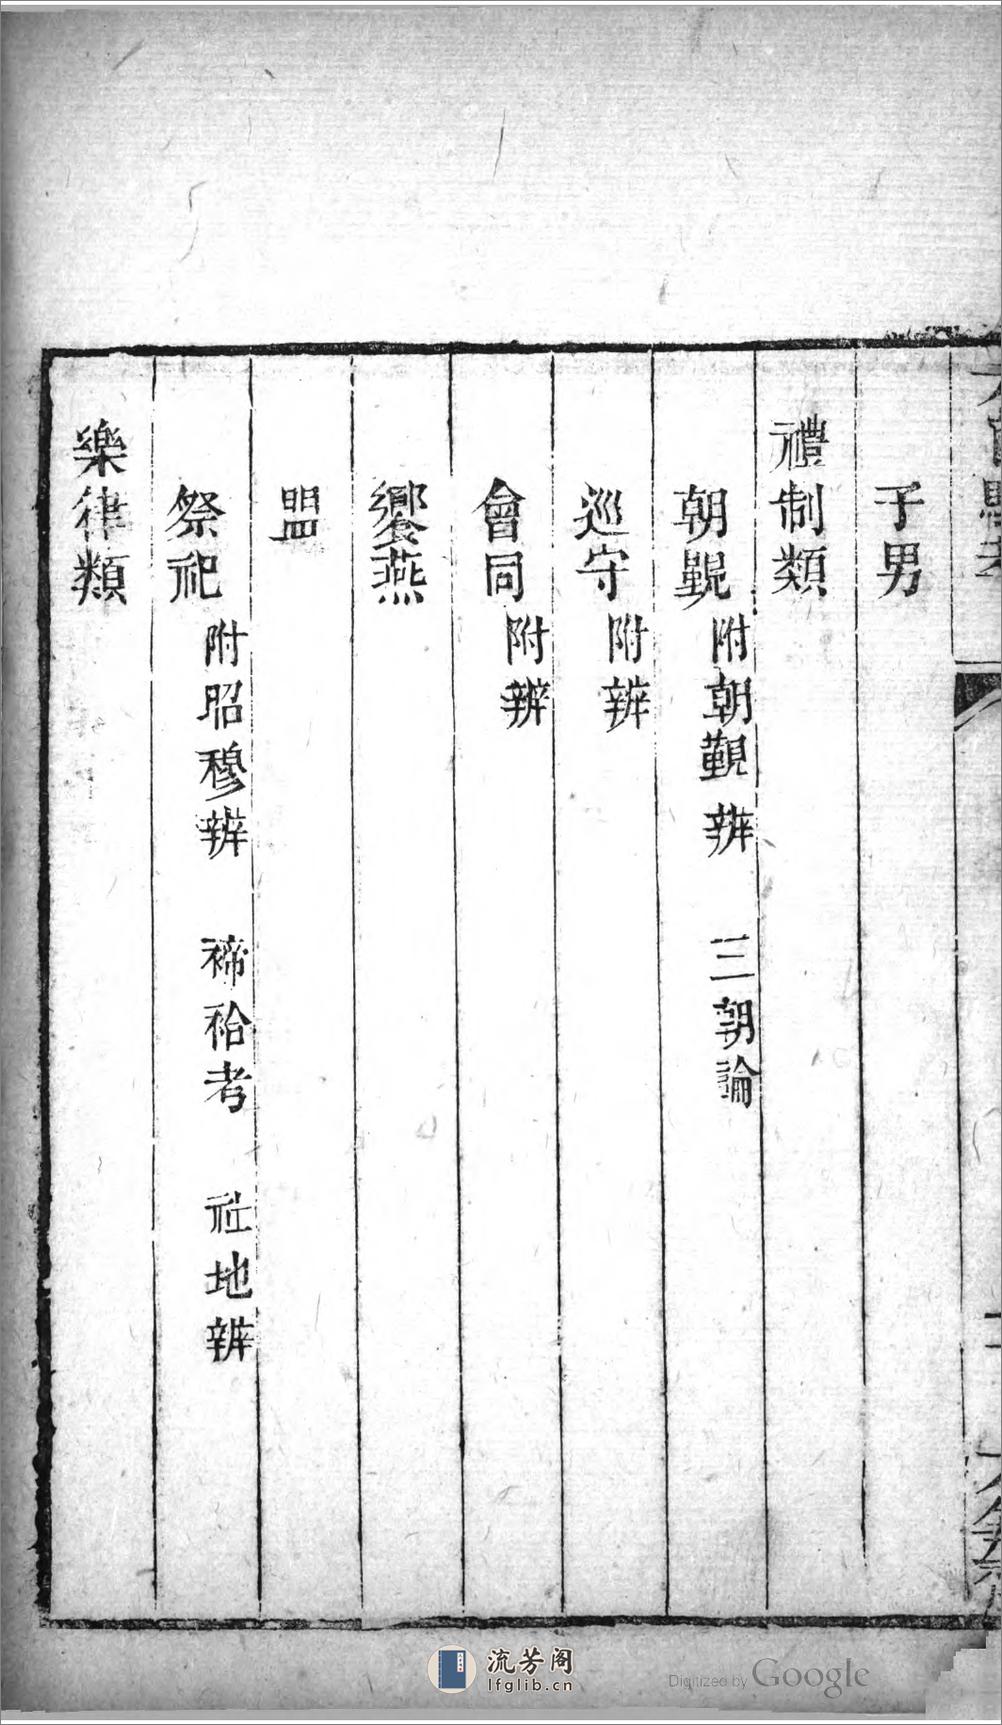 子男
禮制類
朝覲 附朝覲辨 三朝論
巡守 附辨
會同 附辨
饗燕
盟
祭祀 附昭穆辨 禘祫考 社地辨
樂律類
流芳阁
lfglib.cn
Digitized by Google